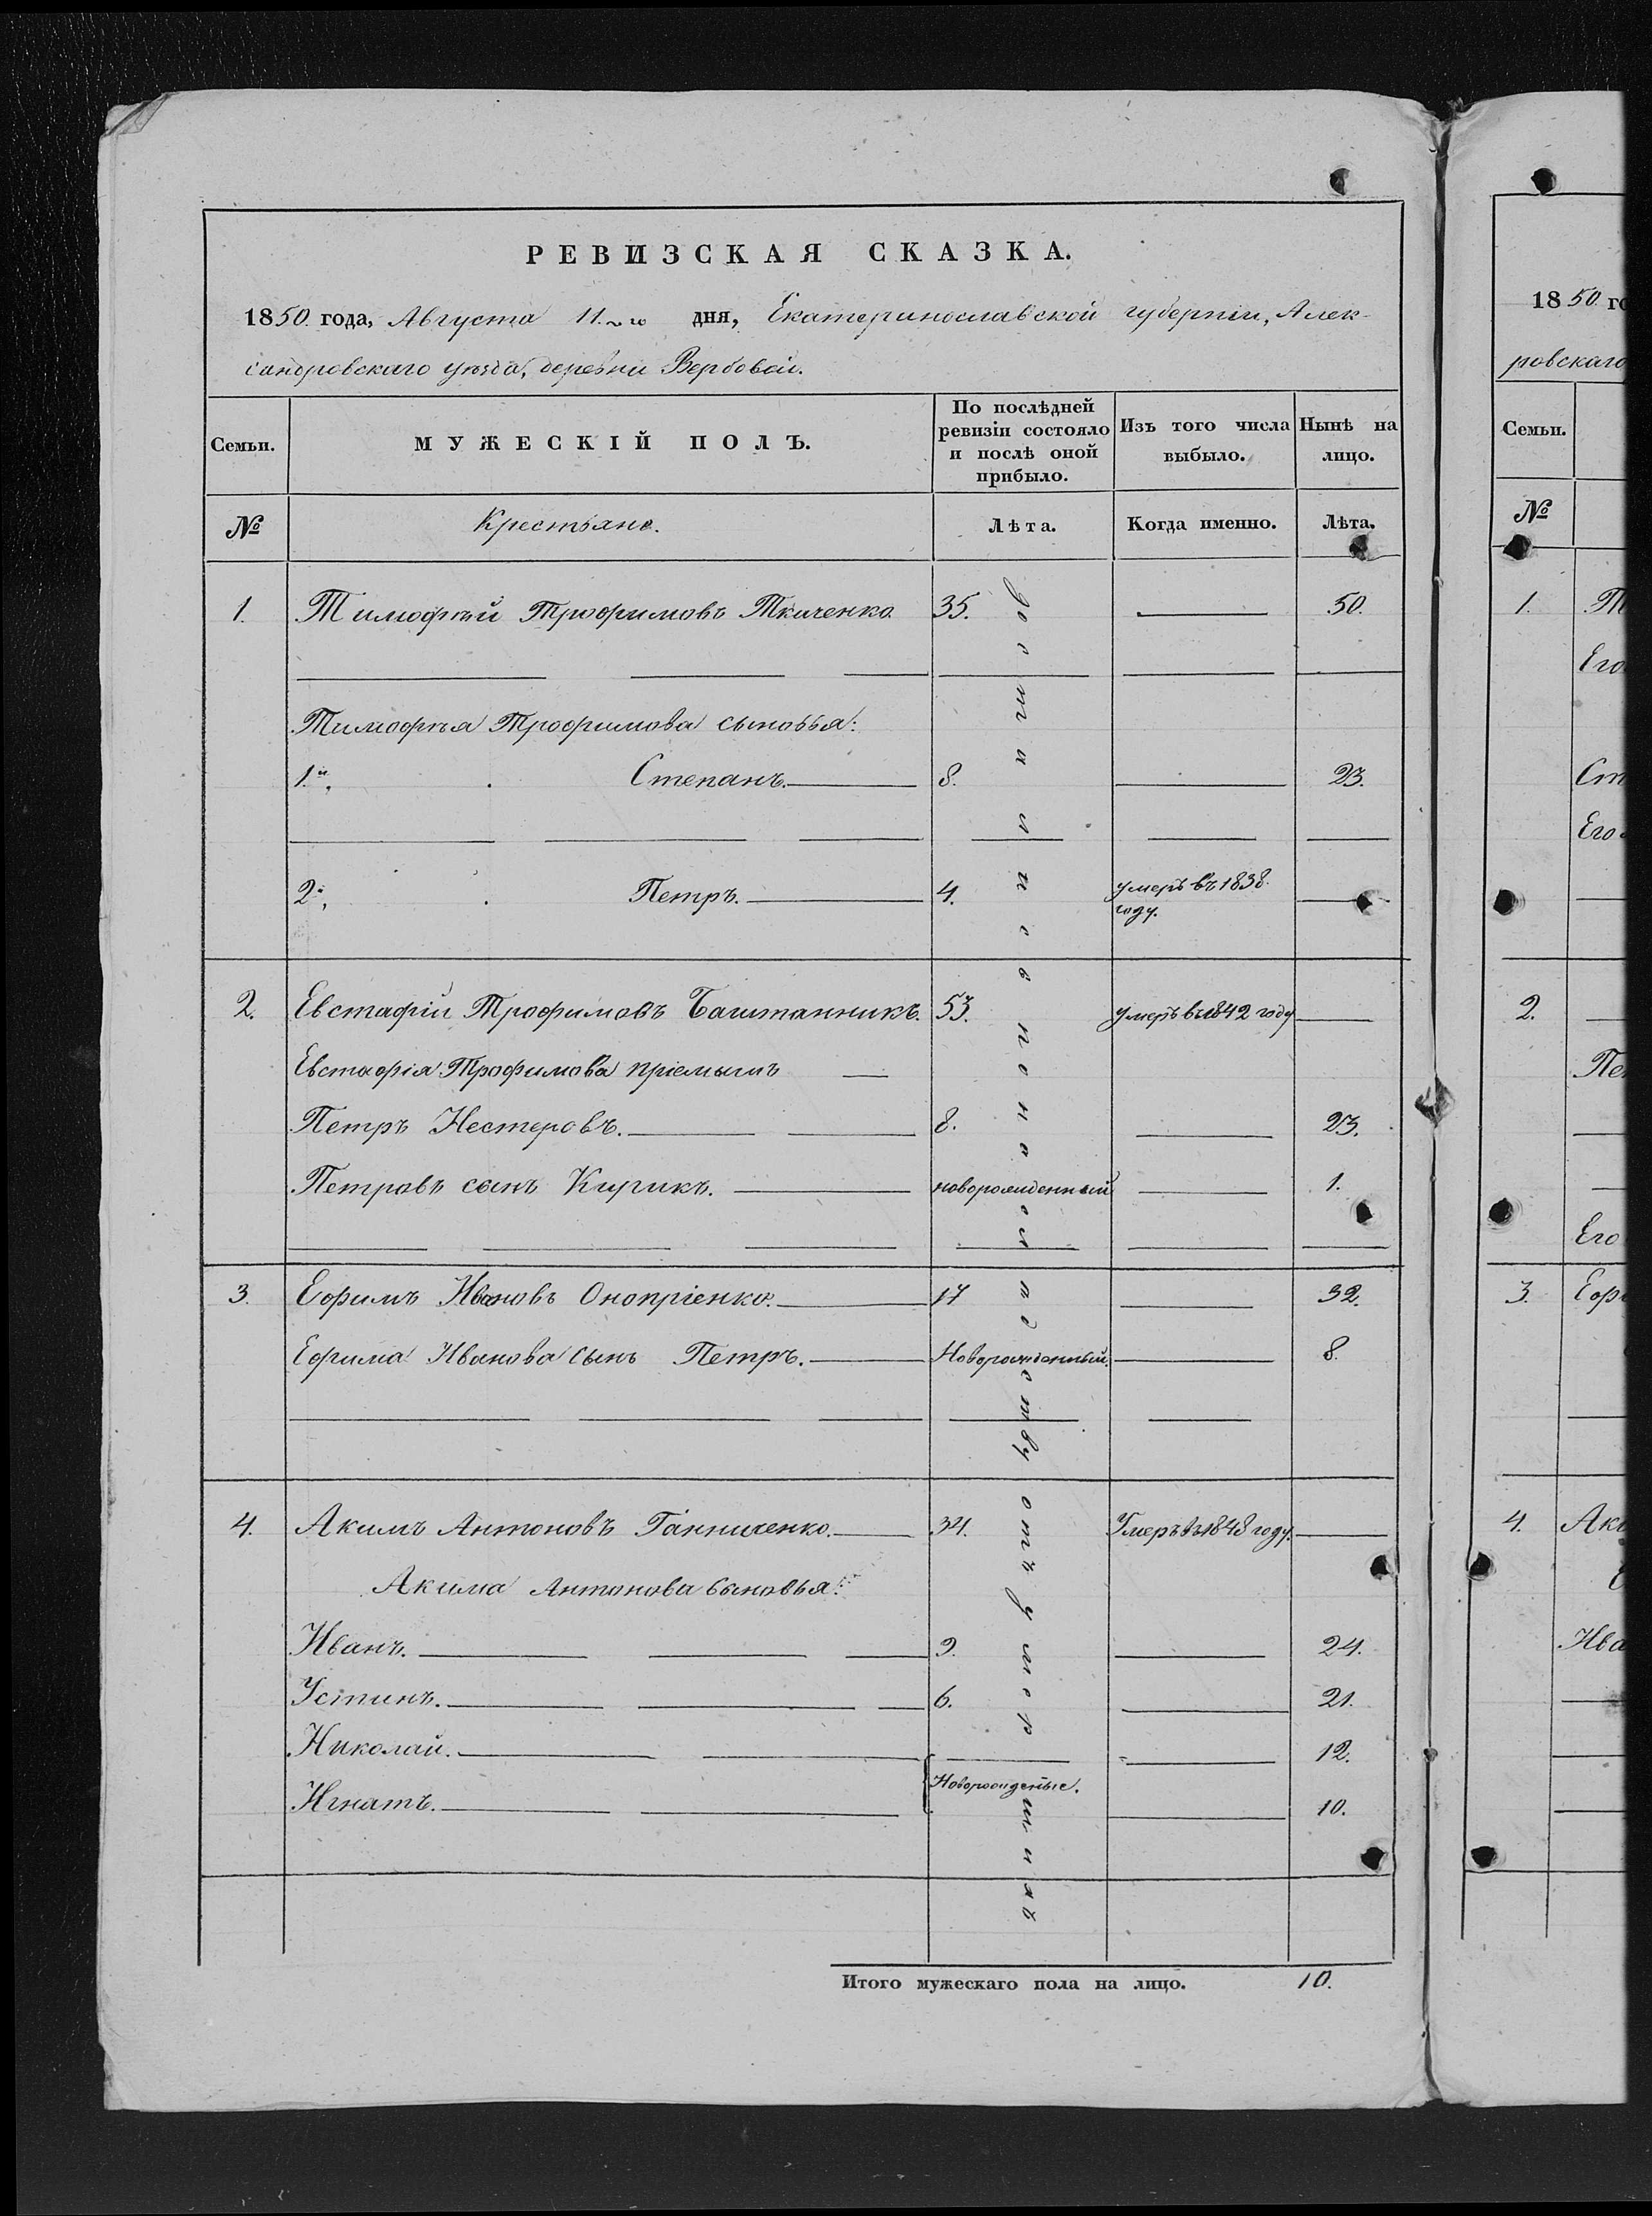 РЕВИЗСКАЯ СКАЗКА.
1850 года, Августа 11.го дня, Екатеринославской губерніи, Алек-
сандровскаго уѣзда, деревни Вербовой.
Семьи. МУЖЕСКІЙ ПОЛЪ. По послѣдней ревизіи состояло и послѣ оной прибыло. Изъ того числа выбыло. Нынѣ на лицо.
№ Крестьяне. Лѣта. Когда именно. Лѣта.
1. Тимофѣй Трофимовъ Ткаченко 35. 50.
Тимофѣя Трофимова сыновья:
1й, Степанъ. 8. 23.
2й, Петръ. 4. умеръ въ 1838. году.
2. Евстафій Трофимовъ Баштанникъ. 53. умеръ въ 1842 году
Евстафія Трофимова пріемышъ
Петръ Нестеровъ. 8. 23.
Петровъ сынъ Кирикъ. новорожденный 1.
3. Ефимъ Ивановъ Оноприенко. 17 32.
Ефима Иванова сынъ Петръ. Новорожденный. 8.
4. Акимъ Антоновъ Ганниченко. 34. Умеръ въ 1848 году.
Акима Антонова сыновья:
Иванъ. 9. 24.
Устинъ. 6. 21.
Николай. 12.
Новорожденые.
Игнатъ. 10.
Итого мужескаго пола на лицо. 10.
1850 го
ровскаго
Семьи.
№
1. Т
Его
Ст
Его
2.
Пе
Его
3. Ефи
4. Аки
Ива